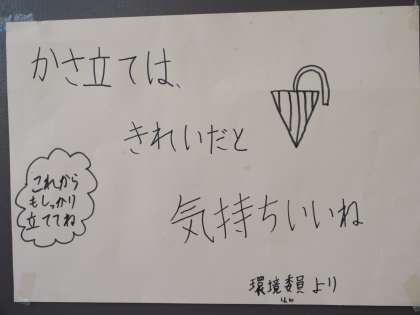 かさ立ては、
きれいだと
気持ちいいね
これから
もしっかり
立ててね
環境委員より